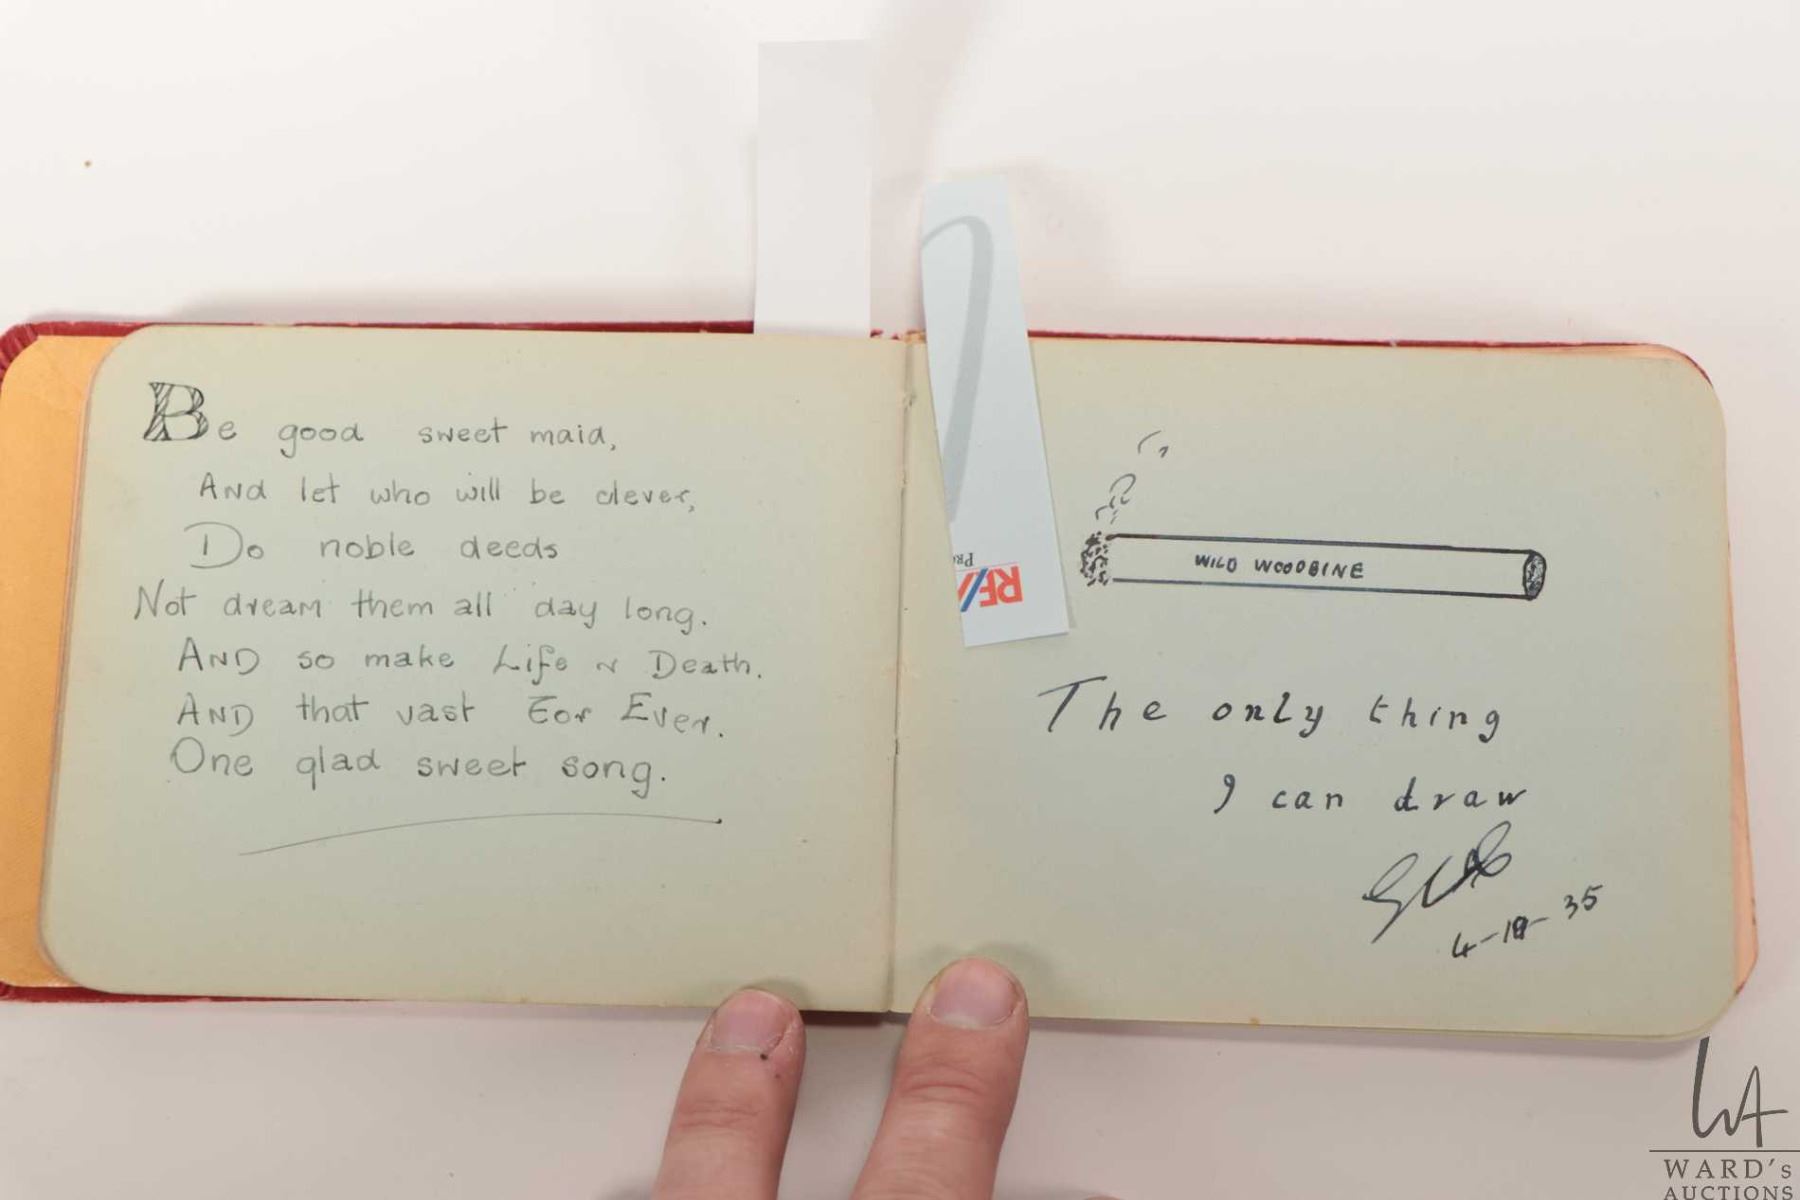 Be good sweet maid,
And let who will be clever,
Do noble deeds
Not dream them all day long.
AND so make Life
Death.
AND that vast For Ever.
One glad sweet song.
RE/
WILD WOODBINE
The only thing
I can draw
35
WA
WARD's
AUCTIONS